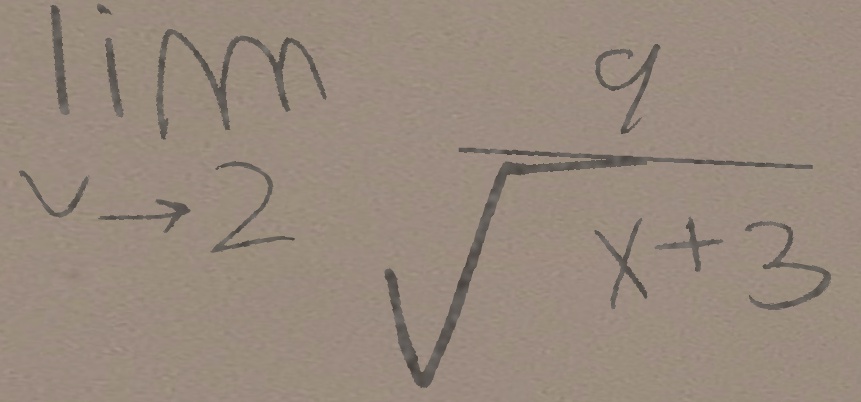 lim v→2 9/√(x+3)